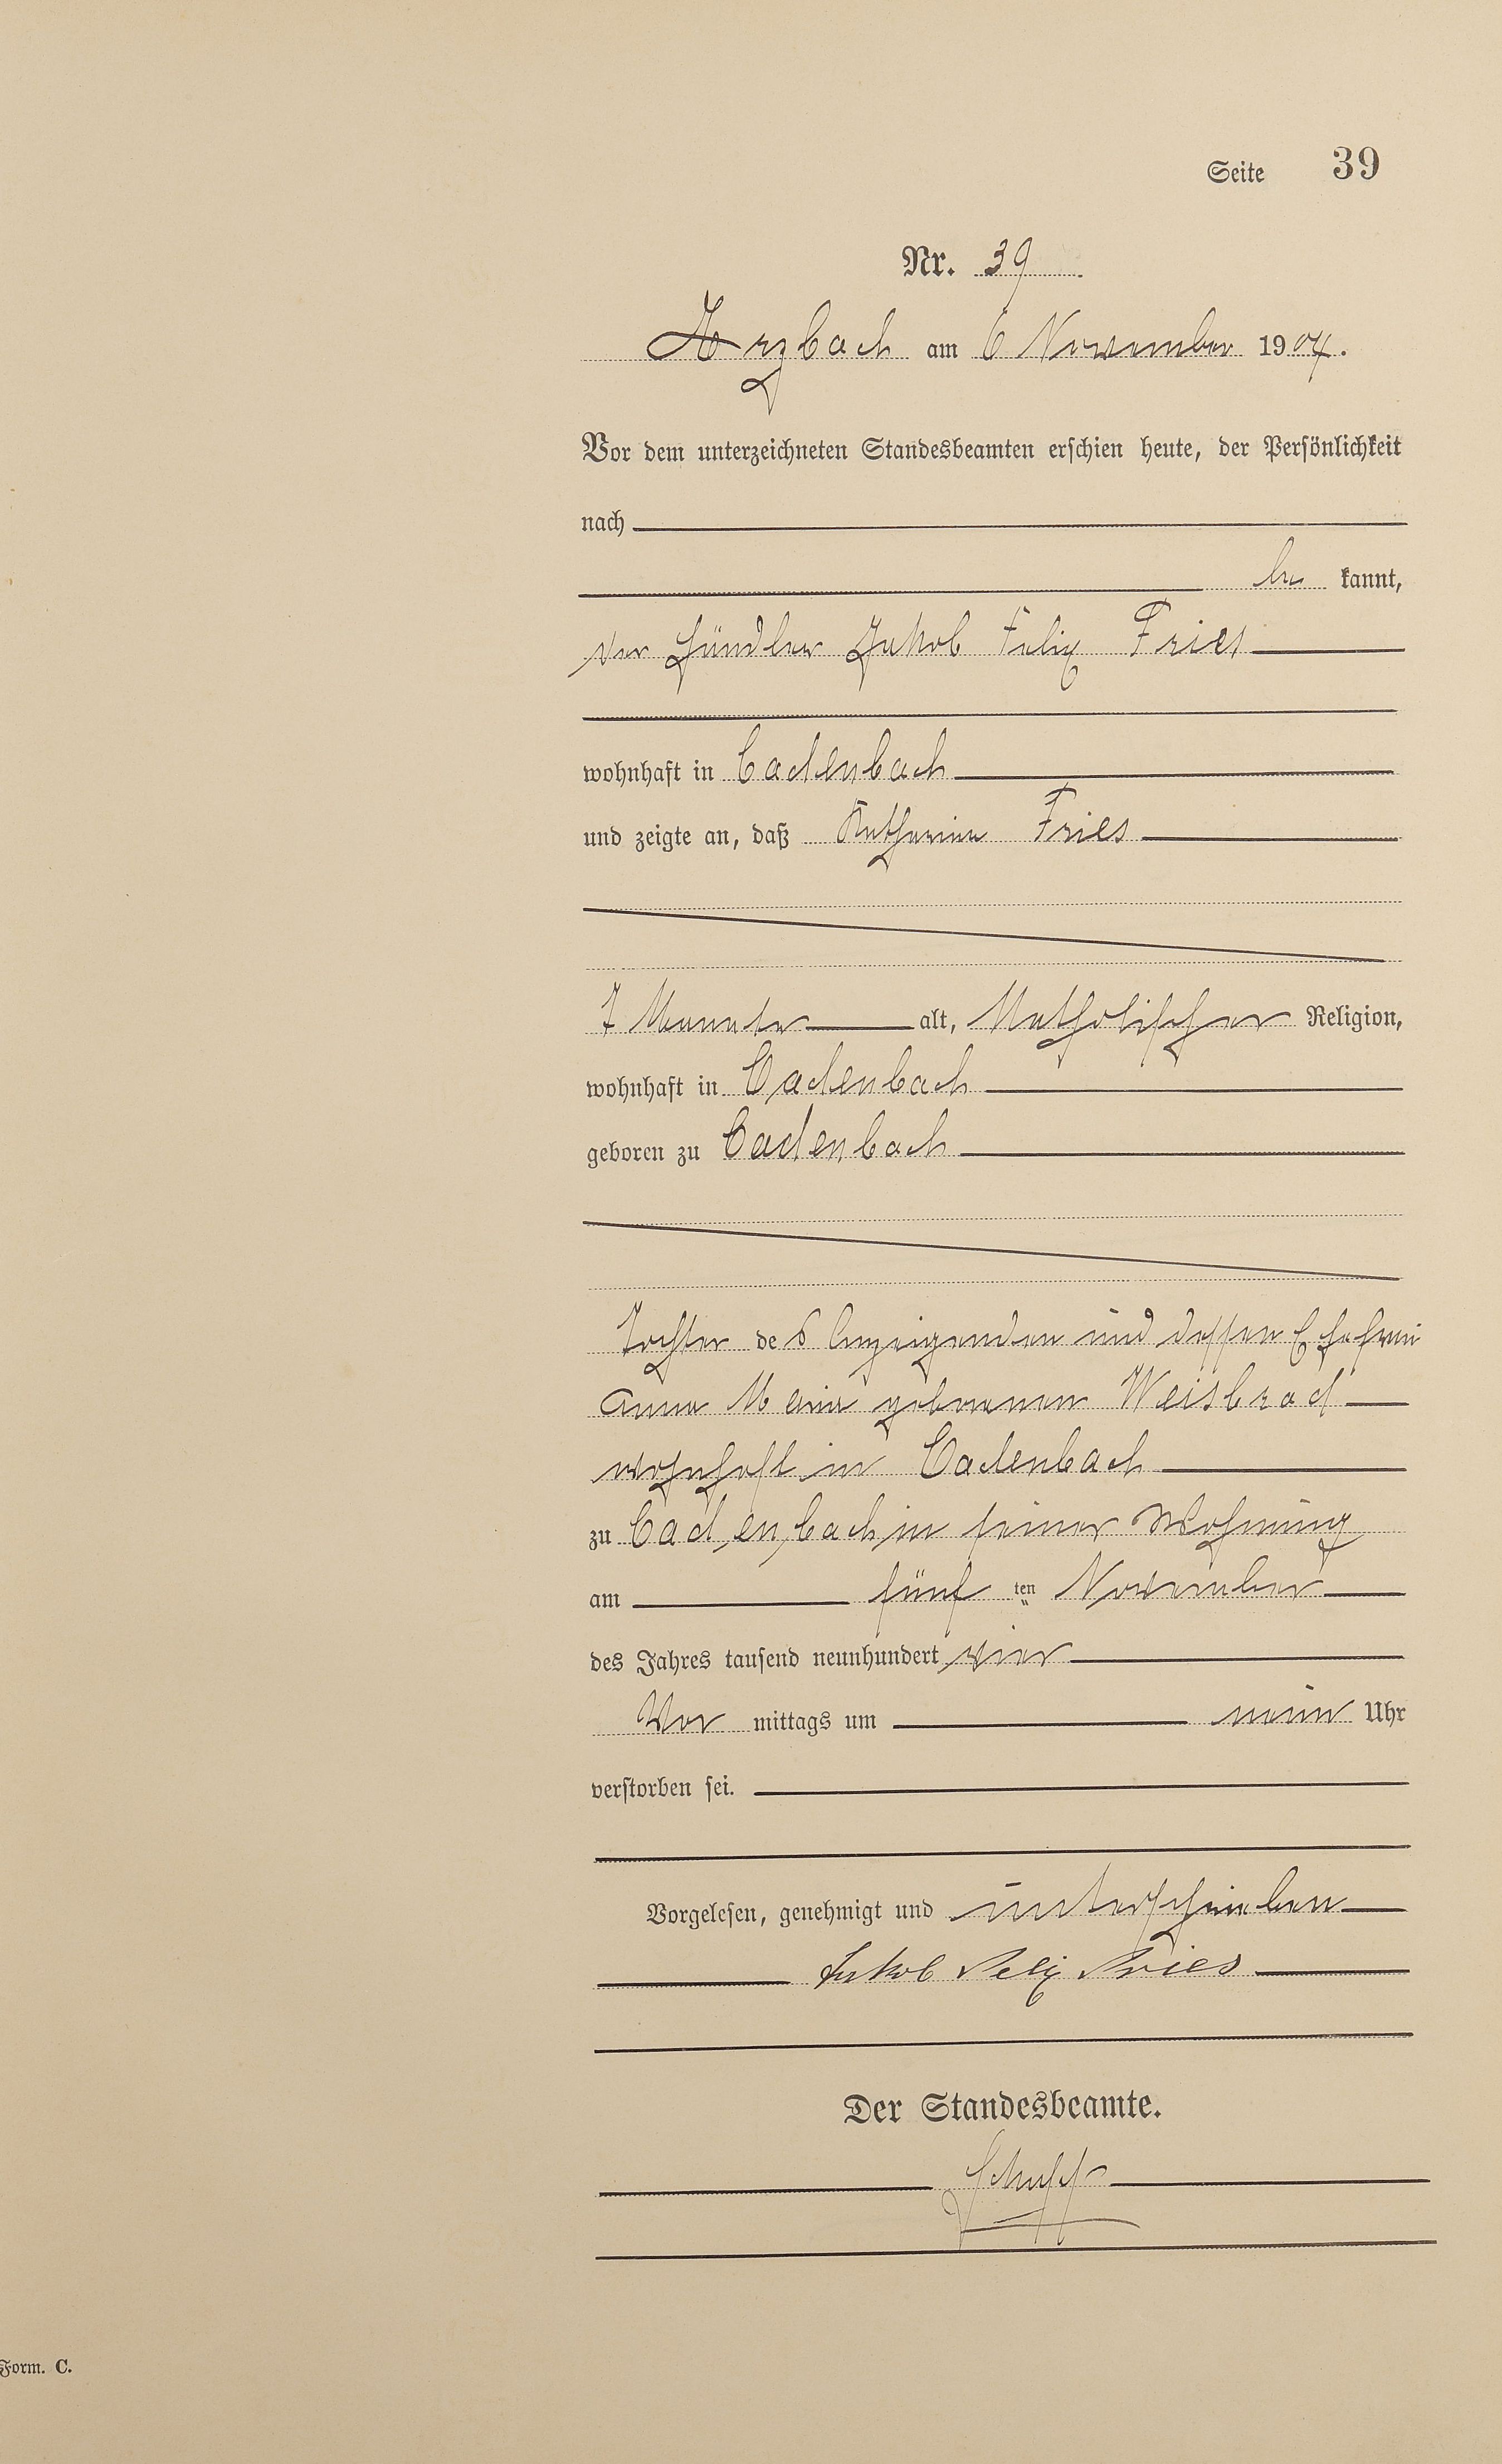 Seite 39
Nr. 39
Arzbach am 6 November 1904.
Vor dem unterzeichneten Standesbeamten erschien heute, der Persönlichkeit
nach
be kannt,
der Händler Jakob Felix Fries
wohnhaft in Cadenbach
und zeigte an, daß Katharina Fries
7 Monate alt, Katholischer Religion,
wohnhaft in Cadenbach
geboren zu Cadenbach
Tochter des Anzeigenden und dessen Ehefrau
Anna Maria geborenen Weisbrod
wohnhaft in Cadenbach
zu Cadenbach in seiner Wohnung
am fünf ten November
des Jahres tausend neunhundert vier
Vor mittags um neun Uhr
verstorben sei.
Vorgelesen, genehmigt und unterschrieben
Jakob Felix Fries
Der Standesbeamte.
Form. C.